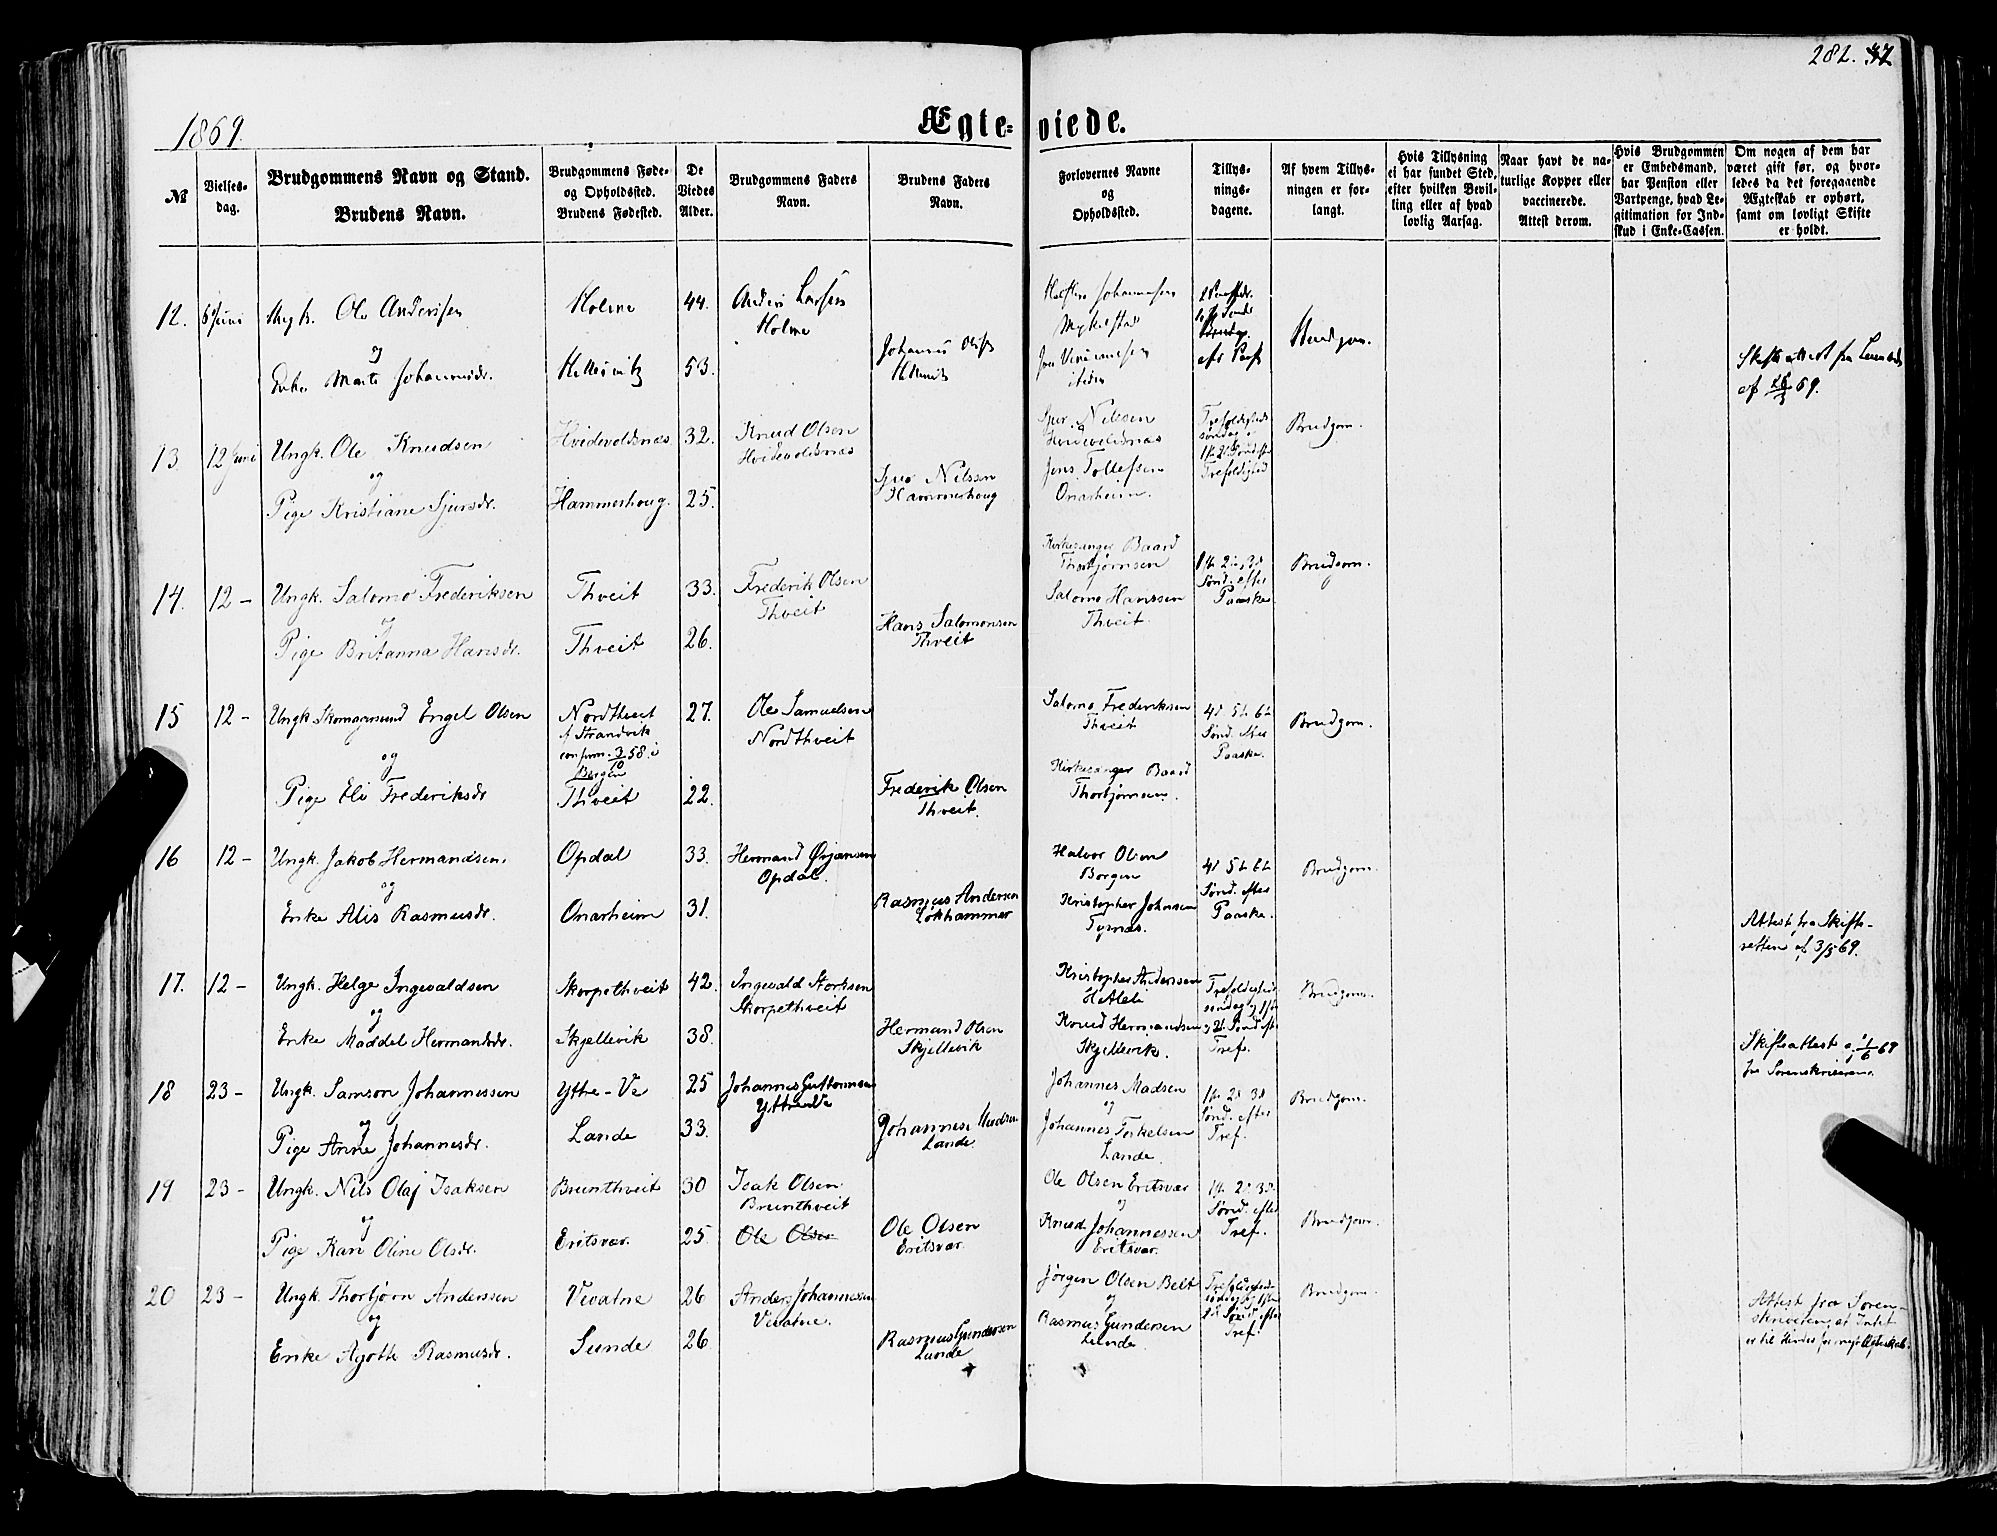 282.
1869.
Ægte=viede.
№
Vielses-
dag.
Brudgommens Navn og Stand.
Brudens Navn.
Brudgommens Føde-
og Opholdssted.
Brudens Fødested.
De
Viedes
Alder.
Brudgommens Faders
Navn.
Brudens Faders
Navn.
Forlovernes Navne
og
Opholdssted.
Tillys-
nings-
dagene.
Af hvem Tillys-
ningen er for-
langt.
Hvis Tillysning
ei har fundet Sted,
efter hvilken Bevil-
ling eller af hvad
lovlig Aarsag.
Naar havt de na-
turlige Kopper eller
vaccinerede.
Attest derom.
Hvis Brudgommen
er Embedsmand,
har Pension eller
Vartpenge, hvad Le-
gitimation for Ind-
skud i Enke-Cassen.
Om nogen af dem har
været gift før, og hvor-
ledes da det foregaaende
Ægteskab er ophørt,
samt om lovligt Skifte
er holdt.
12.
6 Juni
Ungk. Ole Andersen
og
Enke Marte Johannesdr.
Holme
44.
53.
Anders Larsen
Holme
Johannes
Johannesen
Brudgom.
13
12 Juni
Ungk. Ole Knudsen
og
Pige Kristiane Sjursdr.
Hvidevoldsnæs
Hammerhoug.
32.
25.
Knud Olsen
Hvidevoldsnæs
Sjur Nilssen
Hammerhoug
Sjur Nilssen
Hvidevoldsnæs
Jens Tollefsen
Onarheim.
Trefoldigheds
søndag
Trefoldighed
Brudgom.
14.
12 -
Ungk. Salomo Frederiksen
og
Pige Britanna Hansdr.
Thveit
Thveit
33.
26.
Frederik Olsen
Thveit
Hans Salomonsen
Thveit
Kirkesanger Baard
Thorbjørnsen
Salomo Hanssen
Thveit.
1st 2d, 3d
Sønd. efter
Paaske
Brudgom.
15
12 -
Ungk. Engel Olsen
og
Pige Eli Frederiksdr
Nordthveit
i Strandvik
confirm. 3/10 58. i
Bergen
Thveit
27.
22.
Ole Samuelsen
Nordthveit
Frederik Olsen
Thveit.
Salomo Frederiksen
Thveit
Kirkesanger Baard
Thorbjørnsen.
4d 5te 6te
Sønd. efter
Paaske.
Brudgom.
16
12 -
Ungk. Jakob Hermandsen.
og
Enke Alis Rasmusdr.
Opdal
Onarheim
33.
31.
Hermand Ørjansen
Opdal.
Rasmus Andersen
Lökhammer
Halvor Olsen
Borgen
Kristopher Johnsen
Tysnæs.
4d 5te 6te
Sønd. efter
Paaske.
Brudgom.
Attest fra Skifte-
retten af 3/5 69.
17.
12 -
Ungk. Helge Ingevaldsen
og
Enke Maddel Hermandsdr.
Skorpethveit
Skjellevik
42.
38.
Ingevald
Skorpethveit
Hermand Olsen
Skjellevik
Kristopher Anderssen
Knud Hermandsen
Skjellevik.
Trefoldighed
søndag og 1ste
og 2d Sønd efter
Tref.
Brudgom.
Skifteattest
fra Sorenskriveren.
18
23 -
Ungk. Samson Johannessen
og
Pige Anne Johannesdr.
Yttre-Ve
Lande
25
33.
Johannes Guttormsen
Yttre Ve
Johannes
Lande
Johannes Madsen
og
Johannes Torkelsen
Lande.
1st 2d 3d
Sønd. efter
Tref.
Brudgom.
19
23 -
Ungk. Nils Olaj Isaksen
og
Pige Kari Oline Olsdr.
Brunthveit
Eritsvær.
30
25
Isak Olsen
Brunthveit
Ole Olsen
Ole Olsen
Eritsvær.
Ole Olsen Eritsvær
og
Knud Johannessen
Eritsvær.
1st 2d 3d.
Sønd. efter
Tref.
Brudgom.
20
23 -
Ungk. Thorbjørn Anderssen
og
Enke Agothe Rasmusdr.
Vevatne
Sunde
26
26
Anders Johannessen
Vevatne.
Rasmus Gundersen
Lunde
Jörgen Olsen Belt
og
Rasmus Gundersen
Lunde
Trefoldighed-
søndag og 1ste
Sønd. efter
Tref.
Brudgom.
Attest fra Soren-
skriveren, at Intet
er til Hinder for nyt Ægteskab.